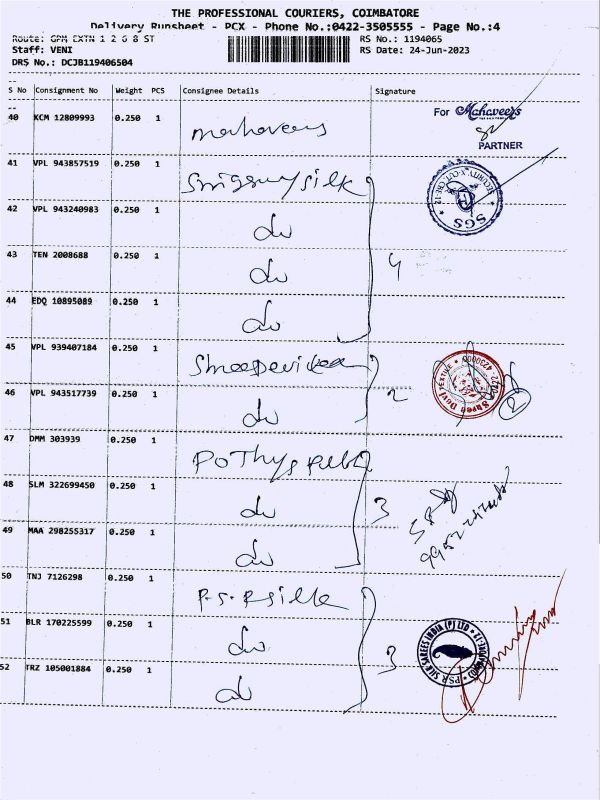 THE PROFESSIONAL COURIERS, COIMBATORE
Delivery Runsheet - PCX - Phone No.:0422-3505555 - Page No.:4
Route: GPM EXTN 1 2 6 8 ST RS No.: 1194065
Staff: VENI RS Date: 24-Jun-2023
DRS No.: DCJB119406504
S No Consignment No Weight PCS Consignee Details Signature
40 KCM 12809993 0.250 1 mahaveers For Mahaveers
PARTNER
41 VPL 943857519 0.250 1 silk
SGS
42 VPL 943240983 0.250 1 do
43 TEN 2008688 0.250 1 do 4
44 EDQ 10895089 0.250 1 do
45 VPL 939407184 0.250 1 Shreedevi
Shree Devi TEXTILE
46 VPL 943517739 0.250 1 do 2 2
47 DMM 303939 0.250 1 POTHYS
48 SLM 322699450 0.250 1 do 3
49 MAA 298255317 0.250 1 do
50 TNJ 7126298 0.250 1 P.S.R silk
51 BLR 170225599 0.250 1 do
PSR SILK SAREES INDIA (P) LTD
52 TRZ 105001884 0.250 1 do 3